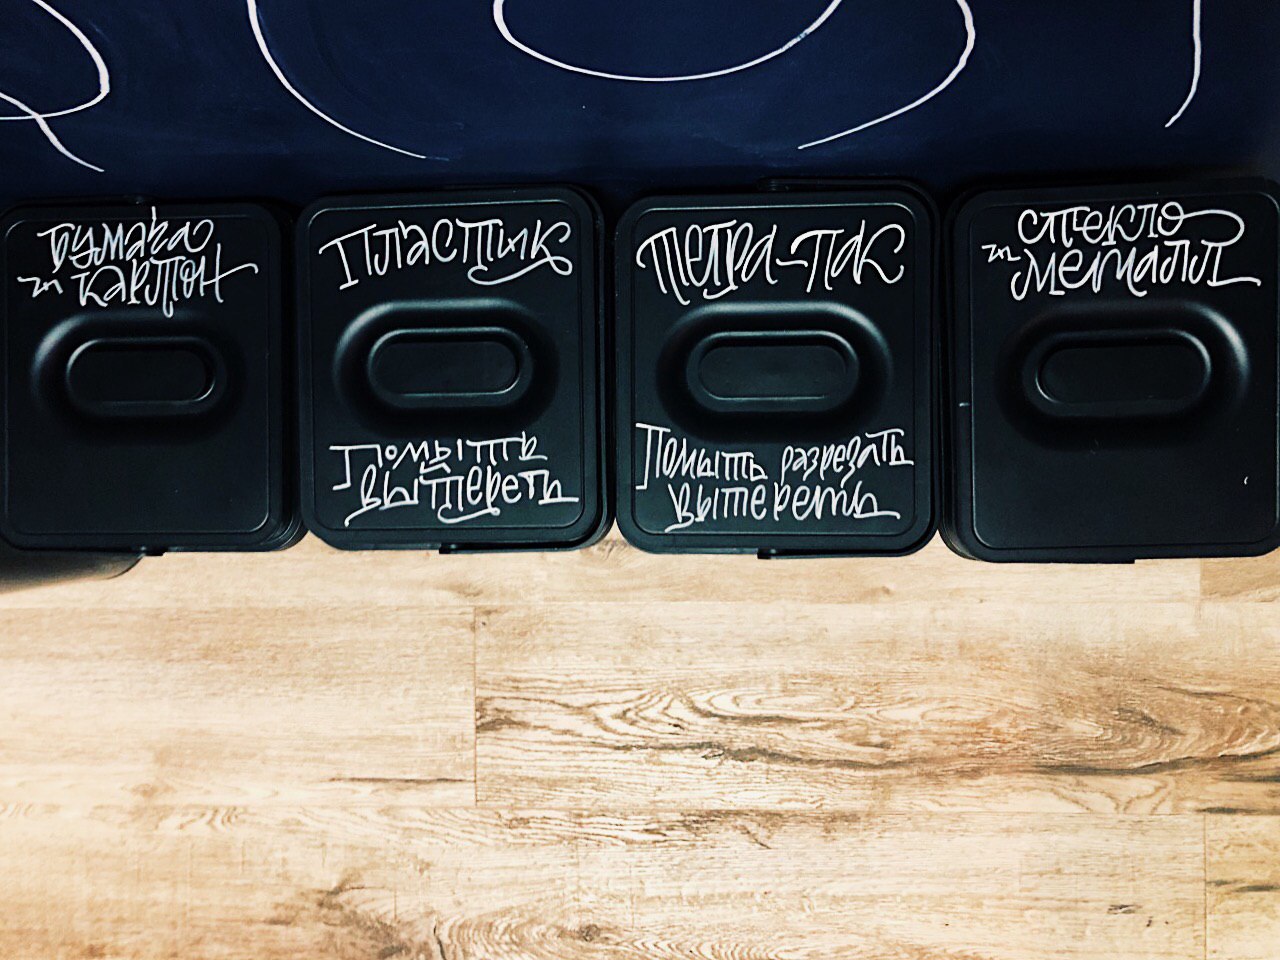 Бумага
и картон
Пластик
Помыть
вытереть
Тетра-Пак
Помыть разрезать
вытереть
стекло
и металл